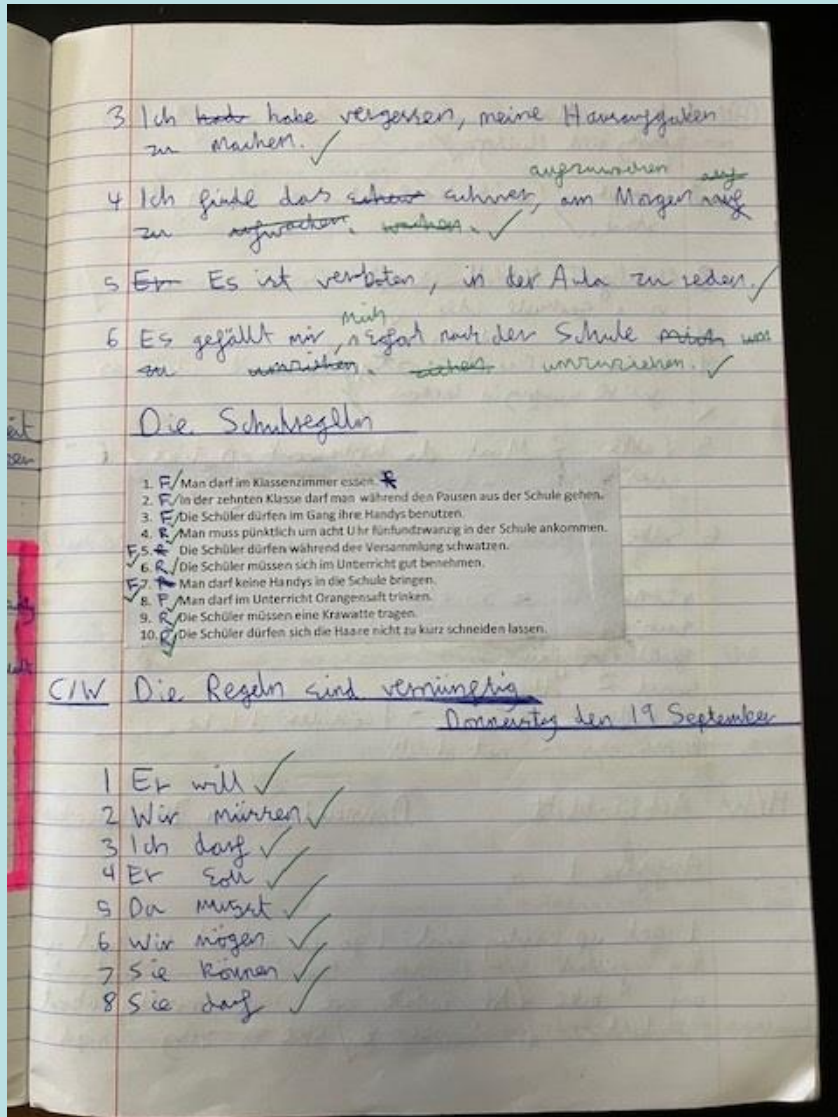 3 Ich habe vergessen, meine Hausaufgaben
zu machen.
aufzuwachen
4 Ich finde das schwer, am Morgen auf
zu aufwachen. wachen.
5 Er Es ist verboten, in der Aula zu reden.
mich
6 Es gefällt mir, sofort nach der Schule mich um
zu umziehen. ziehen. umzuziehen.
Die Schulregeln
1. F Man darf im Klassenzimmer essen. R
2. F In der zehnten Klasse darf man während den Pausen aus der Schule gehen.
3. F Die Schüler dürfen im Gang ihre Handys benutzen.
4. R Man muss pünktlich um acht Uhr fünfundzwanzig in der Schule ankommen.
F 5. Die Schüler dürfen während der Versammlung schwatzen.
6. R Die Schüler müssen sich im Unterricht gut benehmen.
F 7. Man darf keine Handys in die Schule bringen.
8. F Man darf im Unterricht Orangensaft trinken.
9. R Die Schüler müssen eine Krawatte tragen.
10. R Die Schüler dürfen sich die Haare nicht zu kurz schneiden lassen.
C/W Die Regeln sind vernünftig
Donnerstag den 19 September
1 Er will
2 Wir müssen
3 Ich darf
4 Er soll
5 Du musst
6 Wir mögen
7 Sie können
8 Sie darf